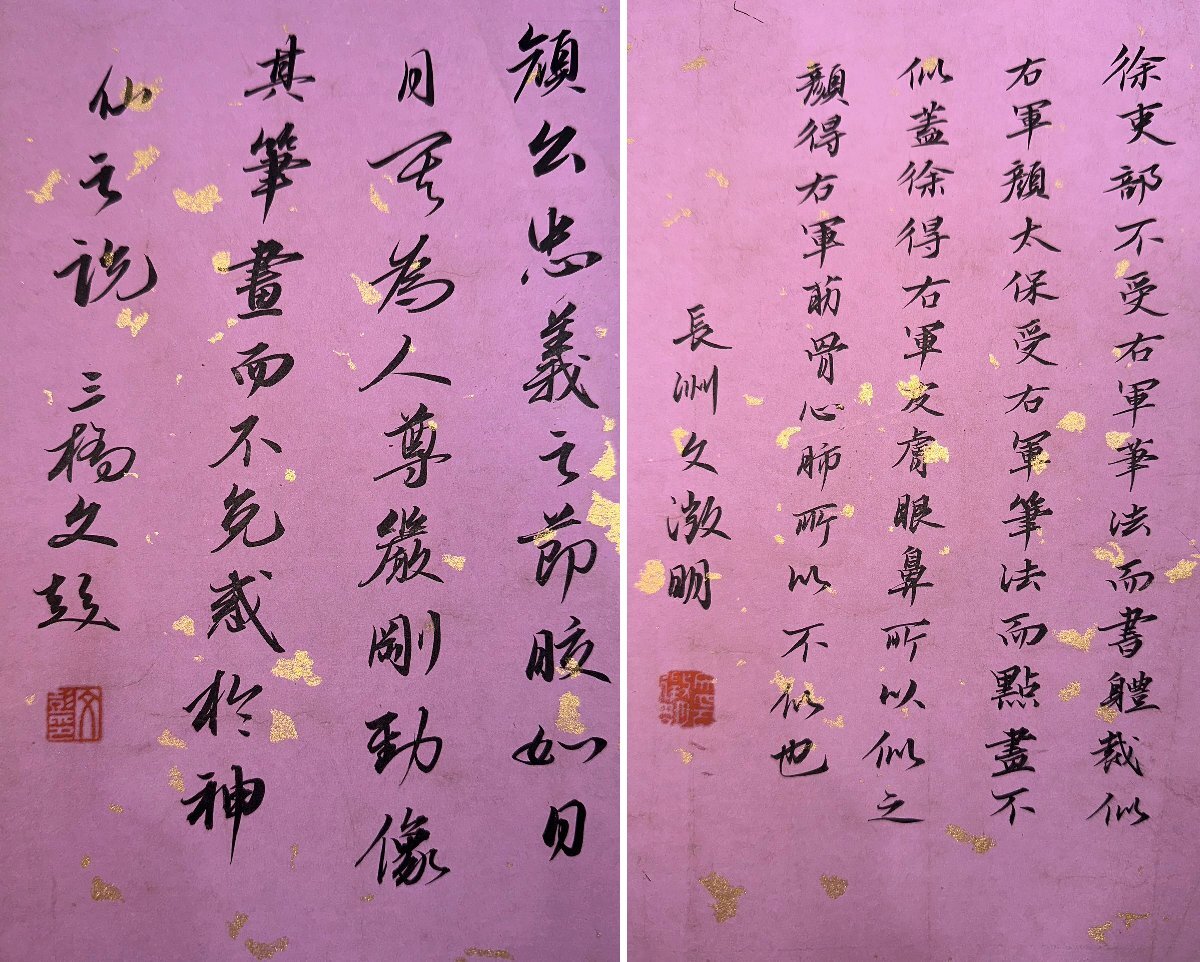 徐吏部不受右軍筆法而書體裁似
右軍顏太保受右軍筆法而點畫不
似蓋徐得右軍皮膚眼鼻所以似之
顏得右軍筋骨心肺所以不似也
長洲文徵明
顏公忠義之節皎如日
月其為人尊嚴剛勁像
其筆畫而不免惑於神
仙之說
三橋文彭
文彭印